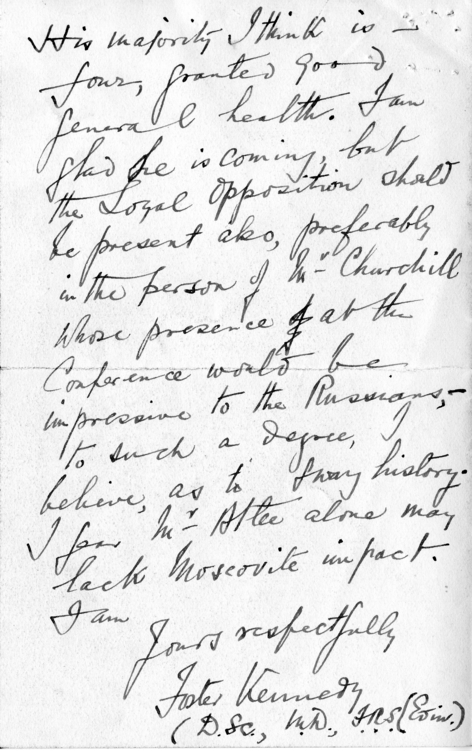 His majority I think is –
four, granted good
general health. I am
glad he is coming, but
the Loyal Opposition should
be present also, preferably
in the person of Mr Churchill
whose presence at the
Conference would be
impressive to the Russians, –
to such a degree, I
believe, as to sway history.
I fear Mr Atlee alone may
lack Moscovite impact.
I am
Yours respectfully
Foster Kennedy
(D.Sc., M.D., F.R.S. (Edin.)